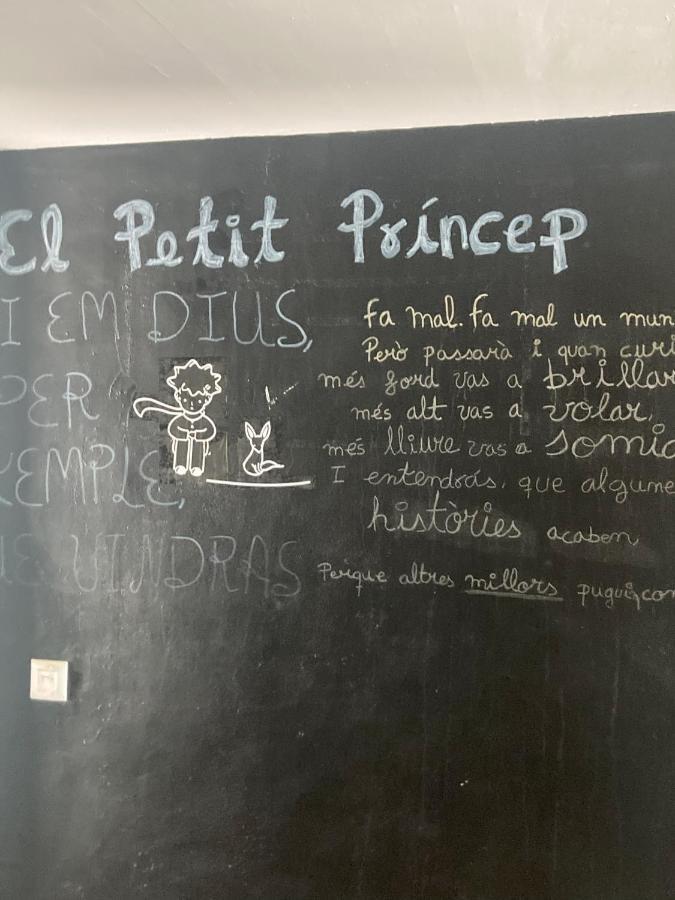 El Petit Príncep
I EM DIUS,
PER
EMPLE,
VINDRAS
fa mal. fa mal un mun
Però passarà i quan curi
més ford vas a brillar
més alt vas a volar,
més lliure vas a somia
I entendràs, que algune
històries acaben
Perque altres millors puguin con